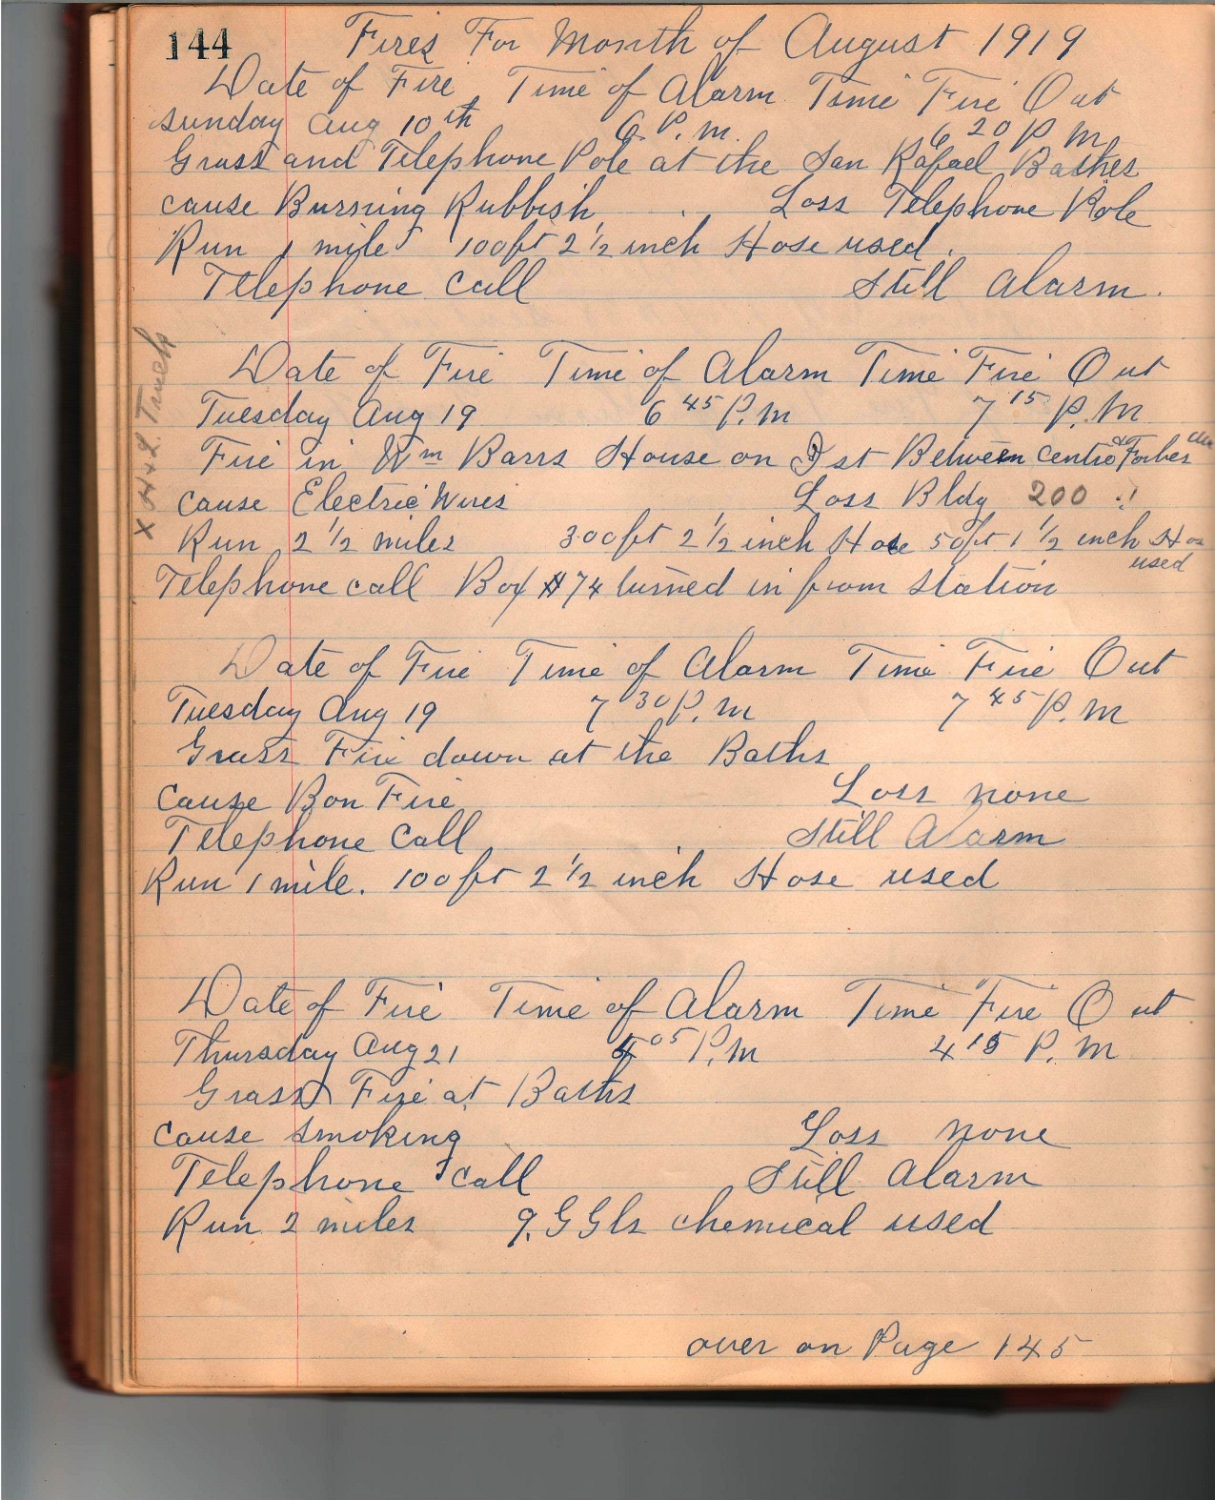 144 Fires For Month of August 1919
Date of Fire Time of Alarm Time Fire Out
Sunday Aug 10th 6 P.m. 6 20 P m
Grass and Telephone Pole at the San Rafael Bathes
cause Burning Rubbish Loss Telephone Pole
Run 1 mile 100ft 2 1/2 inch Hose used.
Telephone Call Still Alarm.
Date of Fire Time of Alarm Time Fire Out
Tuesday Aug 19 6 45 P.M 7 15 P.M
Fire in Wm Barrs House on D st Between Centro & Forbes
cause Electric Wires Loss Bldg 200
Run 2 1/2 miles 300ft 2 1/2 inch Hose 50ft 1 1/2 inch Hos
used
Telephone call Box #74 turned in from station
X H & L Truck
Date of Fire Time of Alarm Time Fire Out
Tuesday Aug 19 7 30 P.M 7 45 P.M
Grass Fire down at the Baths
Cause Bon Fire Loss none
Telephone Call Still Alarm
Run 1 mile. 100ft 2 1/2 inch Hose used
Date of Fire Time of Alarm Time Fire Out
Thursday Aug 21 4 05 P.M 4 15 P.M
Grass Fire at Baths
Cause smoking Loss none
Telephone call Still Alarm
Run 2 miles 9. G Gls chemical used
over on Page 145